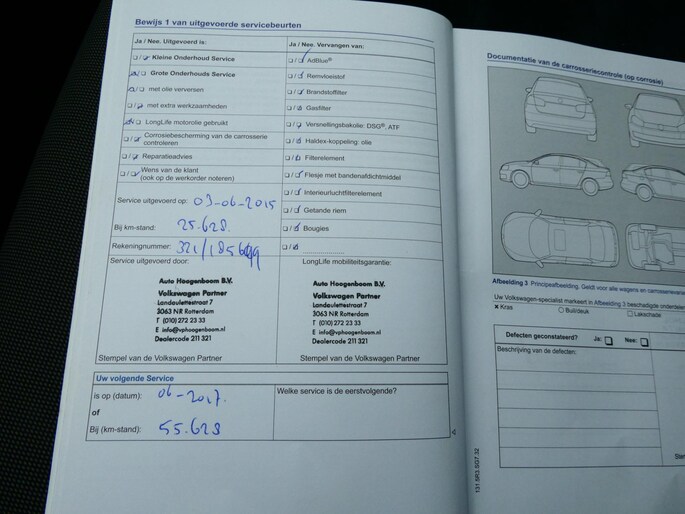 Bewijs 1 van uitgevoerde servicebeurten
Ja / Nee. Uitgevoerd is:
Kleine Onderhoud Service
Grote Onderhouds Service
met olie verversen
met extra werkzaamheden
LongLife motorolie gebruikt
Corrosiebescherming van de carrosserie
controleren
Reparatieadvies
Wens van de klant
(ook op de werkorder noteren)
Service uitgevoerd op: 03-06-2015
Bij km-stand: 25.628
Rekeningnummer:
Service uitgevoerd door:
Auto Hoogenboom B.V.
Volkswagen Partner
Landaulettestraat 7
3063 NR Rotterdam
T (010) 272 23 33
E info@vphoogenboom.nl
Dealercode 211 321
Stempel van de Volkswagen Partner
Ja / Nee. Vervangen van:
AdBlue®
Remvloeistof
Brandstoffilter
Gasfilter
Versnellingsbakolie: DSG®, ATF
Haldex-koppeling: olie
Filterelement
Flesje met bandenafdichtmiddel
Interieurluchtfilterelement
Getande riem
Bougies
LongLife mobiliteitsgarantie:
Auto Hoogenboom B.V.
Volkswagen Partner
Landaulettestraat 7
3063 NR Rotterdam
T (010) 272 23 33
E info@vphoogenboom.nl
Dealercode 211 321
Stempel van de Volkswagen Partner
Uw volgende Service
is op (datum): 06-2017.
of
Bij (km-stand): 55.628
Welke service is de eerstvolgende?
Documentatie van de carrosseriecontrole (op corrosie)
Afbeelding 3 Principeafbeelding. Geldt voor alle wagens en
Uw Volkswagen-specialist markeert in Afbeelding 3 beschadigde
Kras
Buil/deuk
Lakschade
Defecten geconstateerd?
Ja:
Nee:
Beschrijving van de defecten:
131.5R3.SG7.32